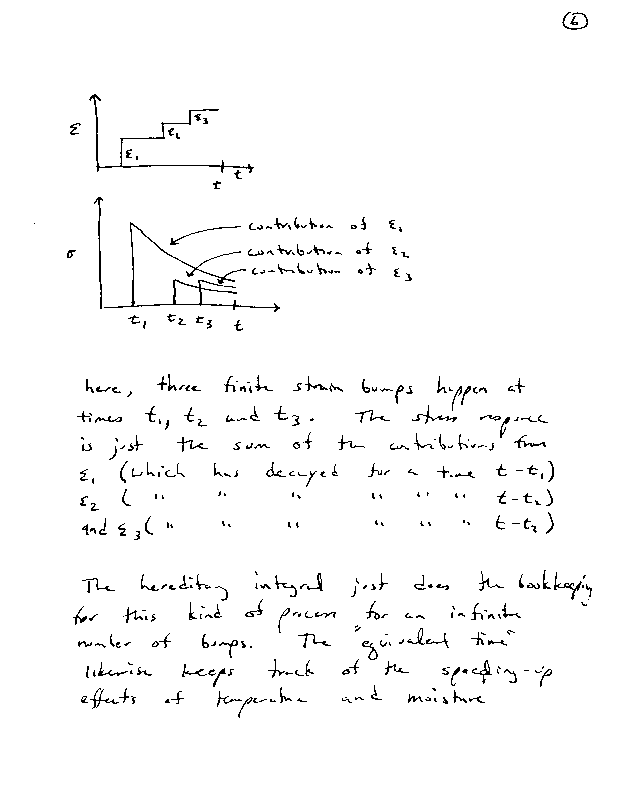 6
ε
ε1
ε2
ε3
t
t
σ
contribution of ε1
contribution of ε2
contribution of ε3
t1 t2 t3 t
here, three finite strain bumps happen at
times t1, t2 and t3. The stress response
is just the sum of the contributions from
ε1 (which has decayed for a time t-t1)
ε2 ( " " " " " " t-t2)
and ε3 ( " " " " " " t-t3)
The hereditary integral just does the bookkeeping
for this kind of process for an infinite
number of bumps. The "equivalent time"
likewise keeps track of the speeding-up
effects of temperature and moisture